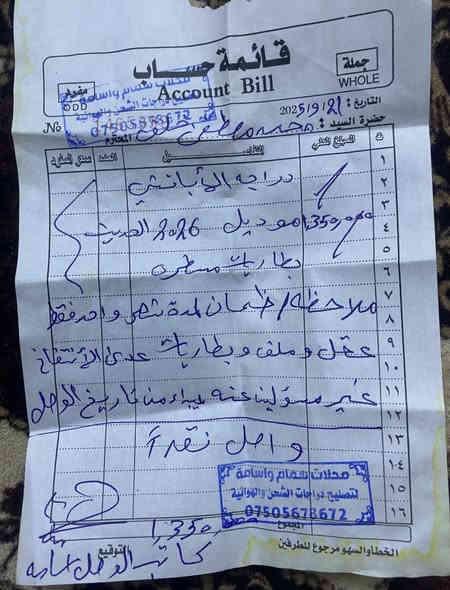 قائمة حساب
Account Bill
جملة
WHOLE
مفرد
محلات همام واسامة
لتصليح دراجات الشحن والهوائية
07505678672
التاريخ : 2025/9/21
No
حضرة السيد : محمد مصطفى خلف المحترم
ت المبلغ الكلي التفاصيل العدد سعر المفرد
١
٢ دراجه
٣
٤ 1,350,000 موديل 2026 الحديث
٥
٦ بطاريات
٧ ملاحظة / ضمان لمدة شهر واحد فقط
٨
٩ عقل وملف وبطاريات عدى الأنتفاخ
١٠
١١ غير مسؤلين عنه يبداء من تاريخ الوصل
١٢
١٣ واصل نقداً
١٤
١٥
١٦
محلات همام واسامة
لتصليح دراجات الشحن والهوائية
07505678672
المجموع
1,350
الخطأ والسهو مرجوع للطرفين
التوقيع
كاتب الوصل اسامه